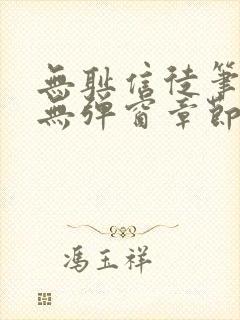 無耻信徒筆
無彈窗章節
馮玉祥